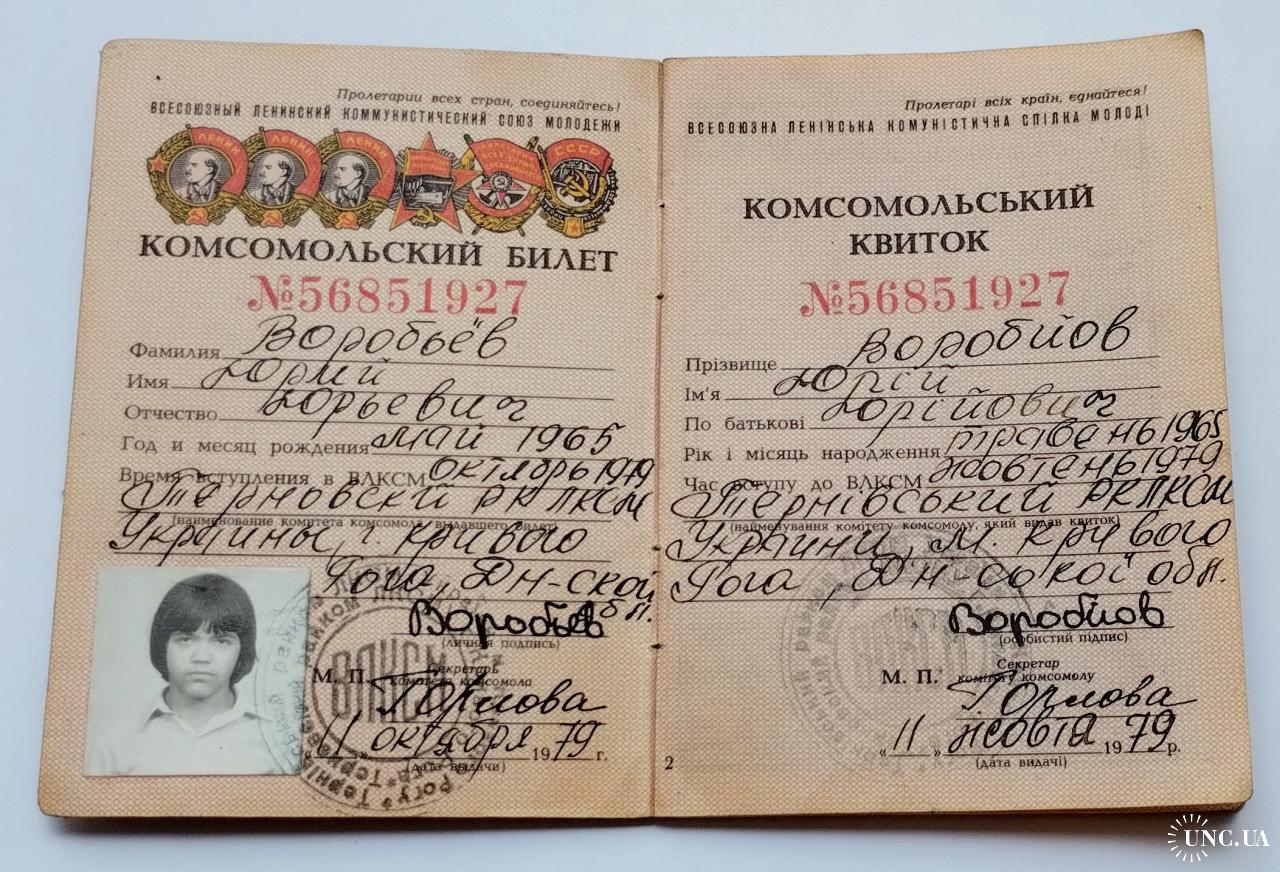 Пролетарии всех стран, соединяйтесь!
ВСЕСОЮЗНЫЙ ЛЕНИНСКИЙ КОММУНИСТИЧЕСКИЙ СОЮЗ МОЛОДЕЖИ
ЛЕНИН ЛЕНИН ЛЕНИН СССР
КОМСОМОЛЬСКИЙ БИЛЕТ
№56851927
Фамилия Воробьёв
Имя Юрий
Отчество Юрьевич
Год и месяц рождения май 1965
Время вступления в ВЛКСМ октябрь 1979
Терновский РКЛКСМ
(наименование комитета комсомола, выдавшего билет)
Украины г. Кривого
Рога, Дн-ской
обл.
Воробьев
(личная подпись)
М. П. Секретарь
комитета комсомола
Горлова
"11" октября 1979 г.
(дата выдачи)
ВЛКСМ
Пролетарі всіх країн, єднайтеся!
ВСЕСОЮЗНА ЛЕНІНСЬКА КОМУНІСТИЧНА СПІЛКА МОЛОДІ
КОМСОМОЛЬСЬКИЙ
КВИТОК
№56851927
Прізвище Воробйов
Ім'я Юрій
По батькові Юрійович
Рік і місяць народження травень 1965
Час вступу до ВЛКСМ жовтень 1979
Тернівський РКЛКСМ
(найменування комітету комсомолу, який видав квиток)
України, м. Кривого
Рога, Дн-ської обл.
Воробйов
(особистий підпис)
М. П. Секретар
комітету комсомолу
Горлова
"11" жовтя 1979 р.
(дата видачі)
2
UNC.UA